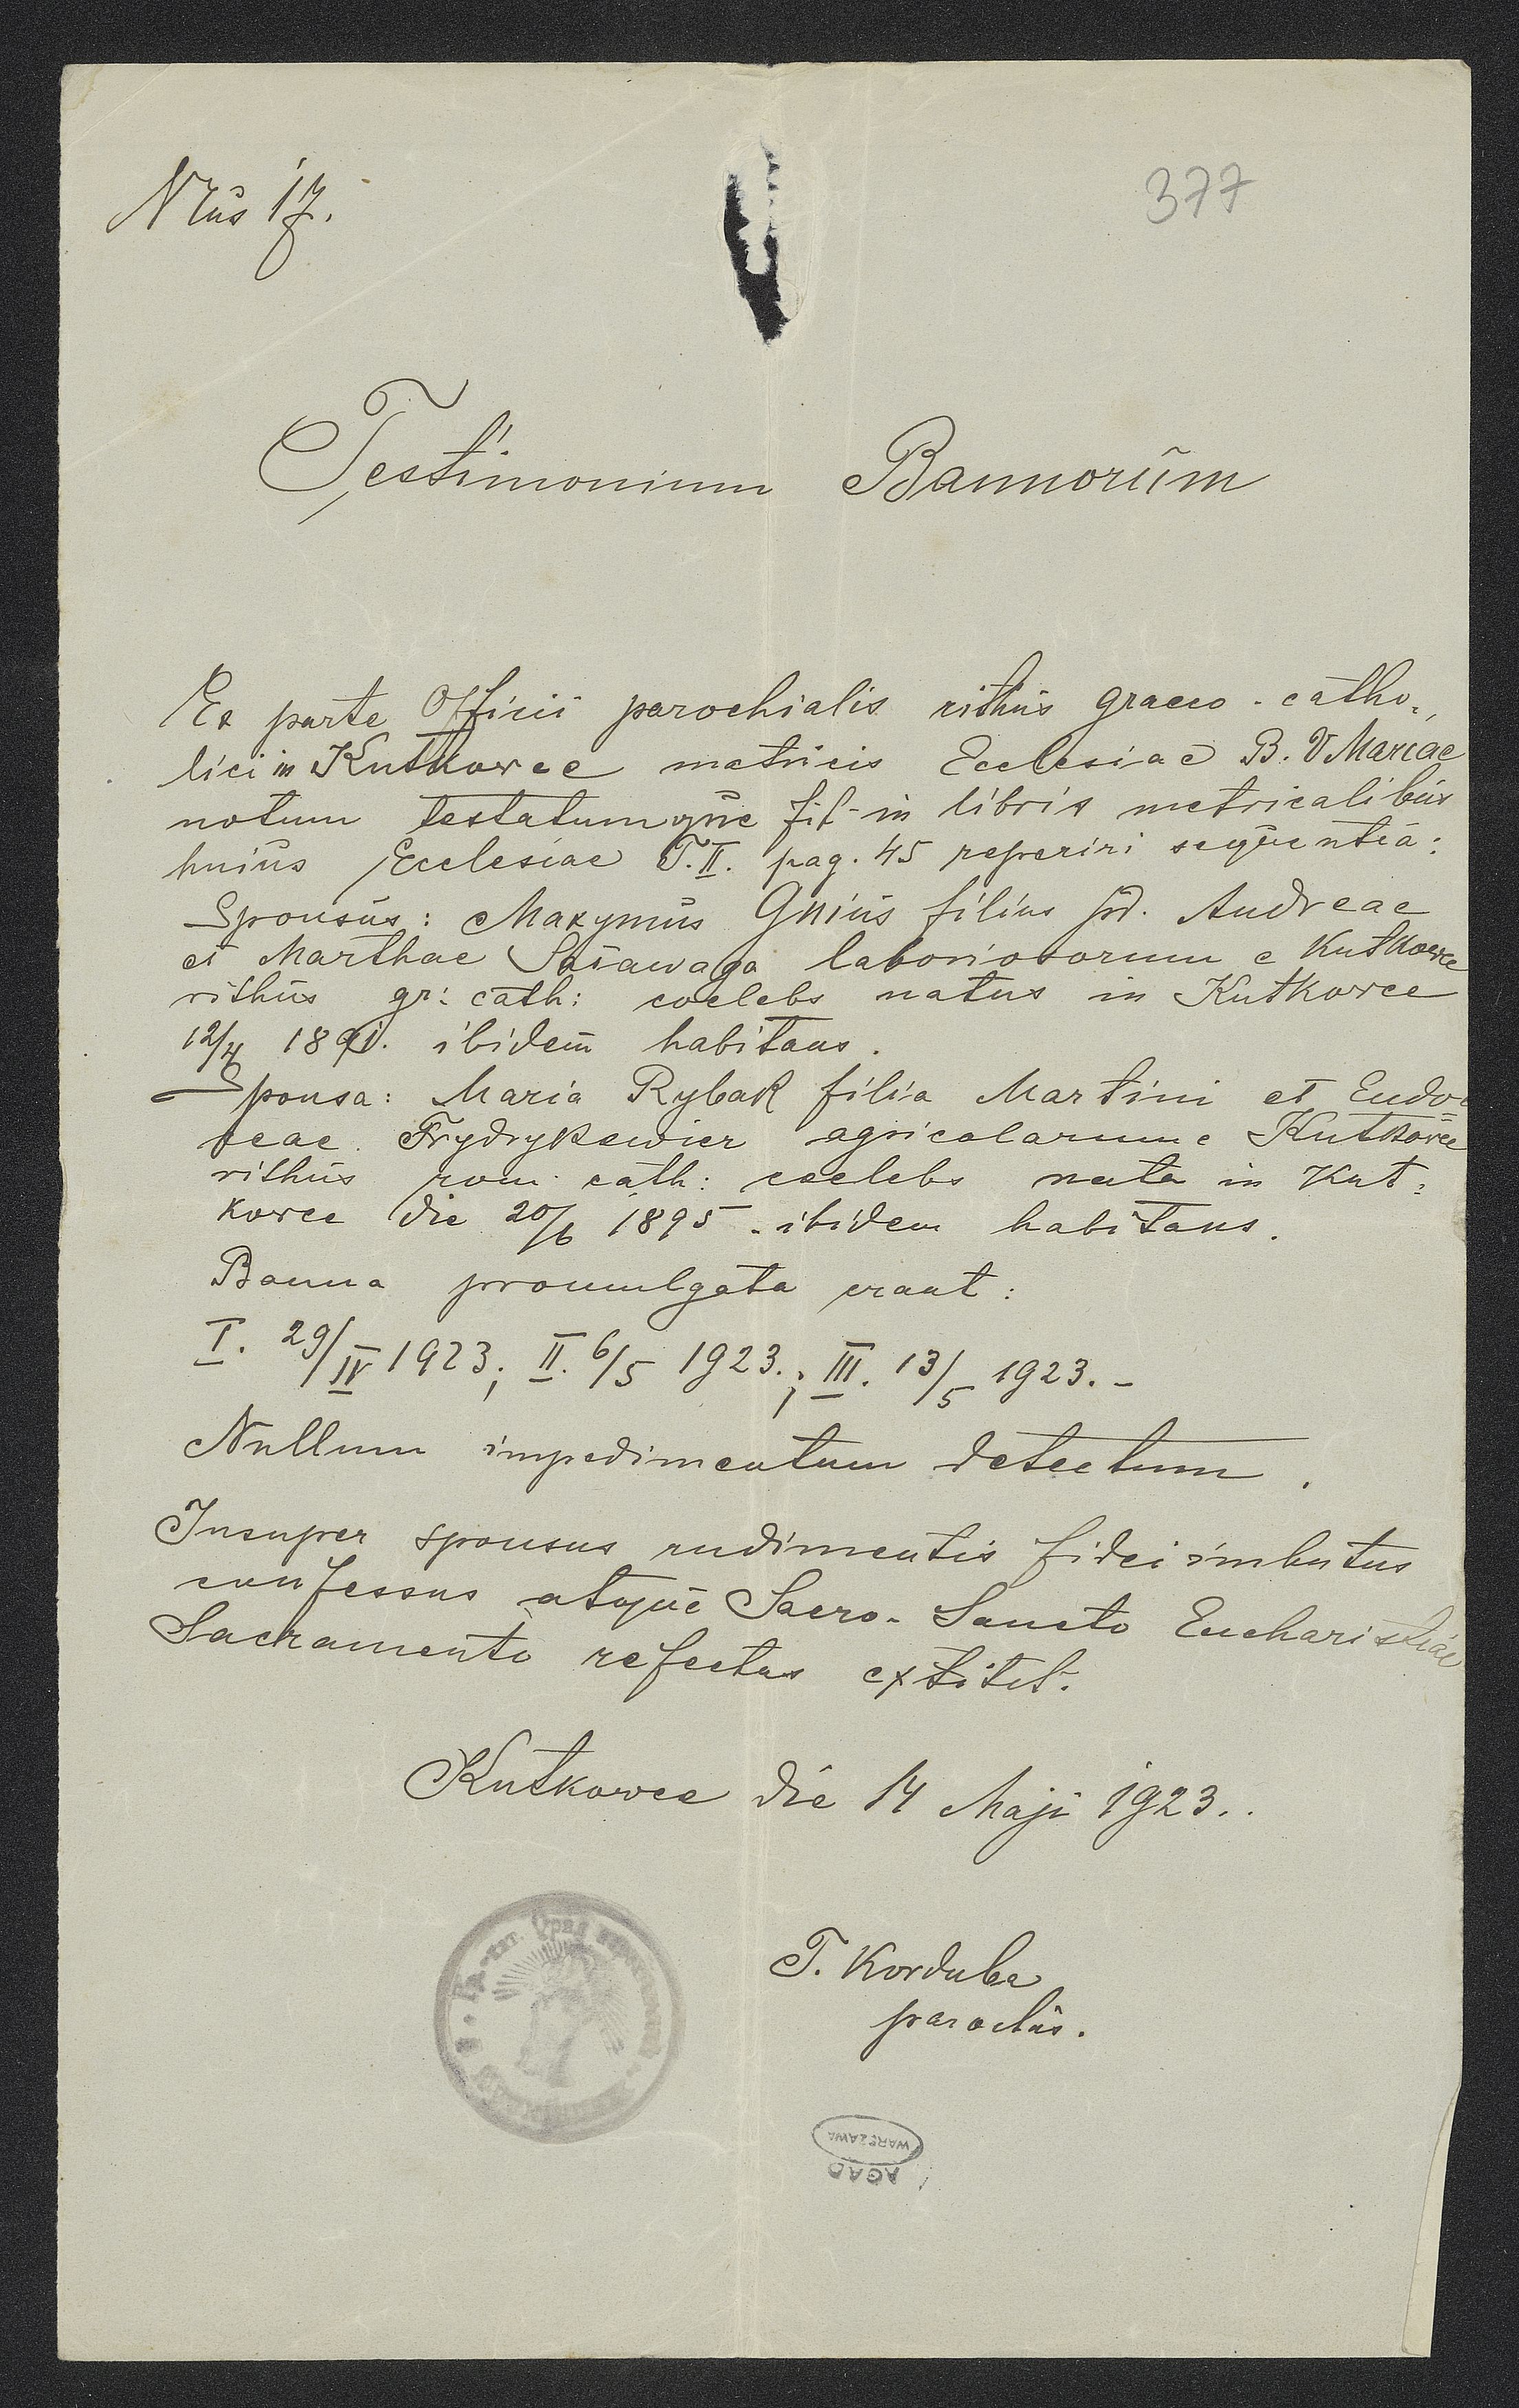 Nrus 17.
377
Testimonium Bannorum
Ex parte Officii parochialis rithus graeco-catho-
lici in Kutkowce matricis Ecclesiae B. V Mariae
notum testatumque fit in libris metricalibus
huius Ecclesiae T. II. pag. 45 reperiri sequentia:
Sponsus: Maxymus Gnius filius pd. Andreae
et Marthae laboriosorum e Kutkowce
rithus gr: cath: coelebs natus in Kutkowce
12/4 1891. ibidem habitans.
Sponsa: Maria Rybak filia Martini et Eudo
agricolarum e Kutkowce
rithus rom: cath: coelebs nata in Kut-
kowce die 20/6 1895. ibidem habitans.
Banna promulgata erant:
I. 29/IV 1923; II. 6/5 1923.; III. 13/5 1923.-
Nullum impedimentum detectum.
Insuper sponsus rudimentis fidei imbutus
confessus atque Sacro-Sancto Eucharistiae
Sacramento refectus extitit.
Kutkowce die 14 Maji 1923.
T. Korduba
parochus.
WARSZAWA
AGAD